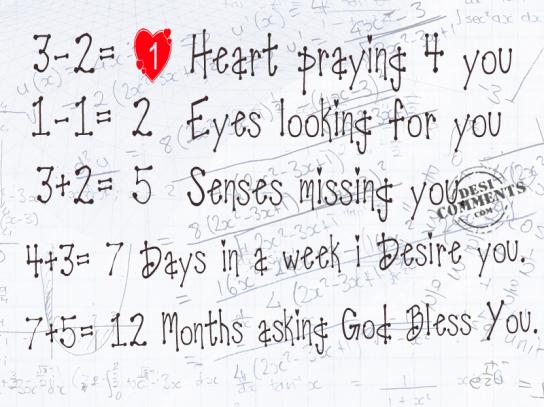 3-2= 1 Heart praying 4 you
1-1= 2 Eyes looking for you
3+2= 5 Senses missing you
DESI COMMENTS .COM
4+3= 7 Days in a week i Desire you.
7+5= 12 Months asking God Bless You.